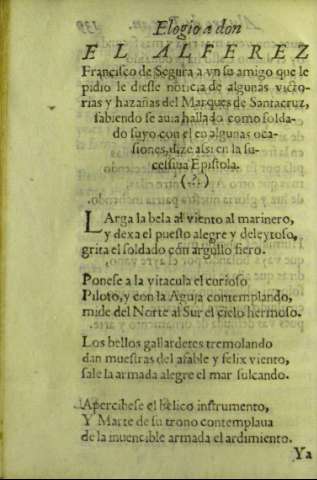 Elogio a don
EL ALFEREZ
Francisco de Segura a vn su amigo que le
pidio le diesse noticia de algunas victo-
rias y hazañas del Marques de Santacruz,
sabiendo se auia hallado como solda-
do suyo con el en algunas oca-
siones, dize assi en la su-
cessiua Epistola.
(.?.)
LArga la bela al viento al marinero,
y dexa el puesto alegre y deleytoso,
grita el soldado con argullo fiero.
Ponese a la vitacula el curioso
Piloto, y con la Aguja contemplando,
mide del Norte al Sur el cielo hermoso.
Los bellos gallardetes tremolando
dan muestras del afable y felix viento,
sale la armada alegre el mar sulcando.
Apercibese el belico instrumento,
Y Marte de su trono contemplaua
de la inuencible armada el ardimiento.
Ya